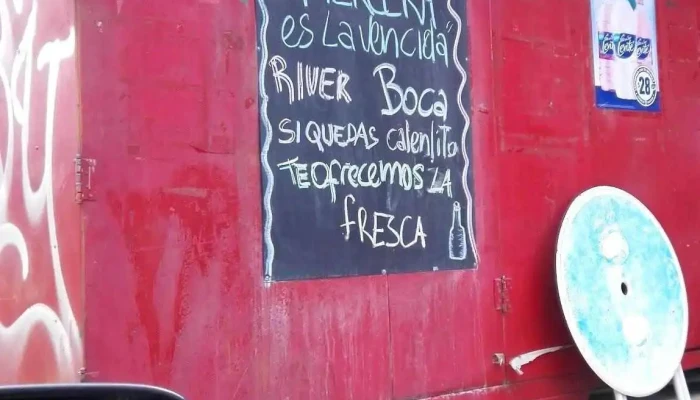 es La vencida"
RIVER Boca
SI QUEDAS calentito
TE OFrecemos LA
fRESCA
28